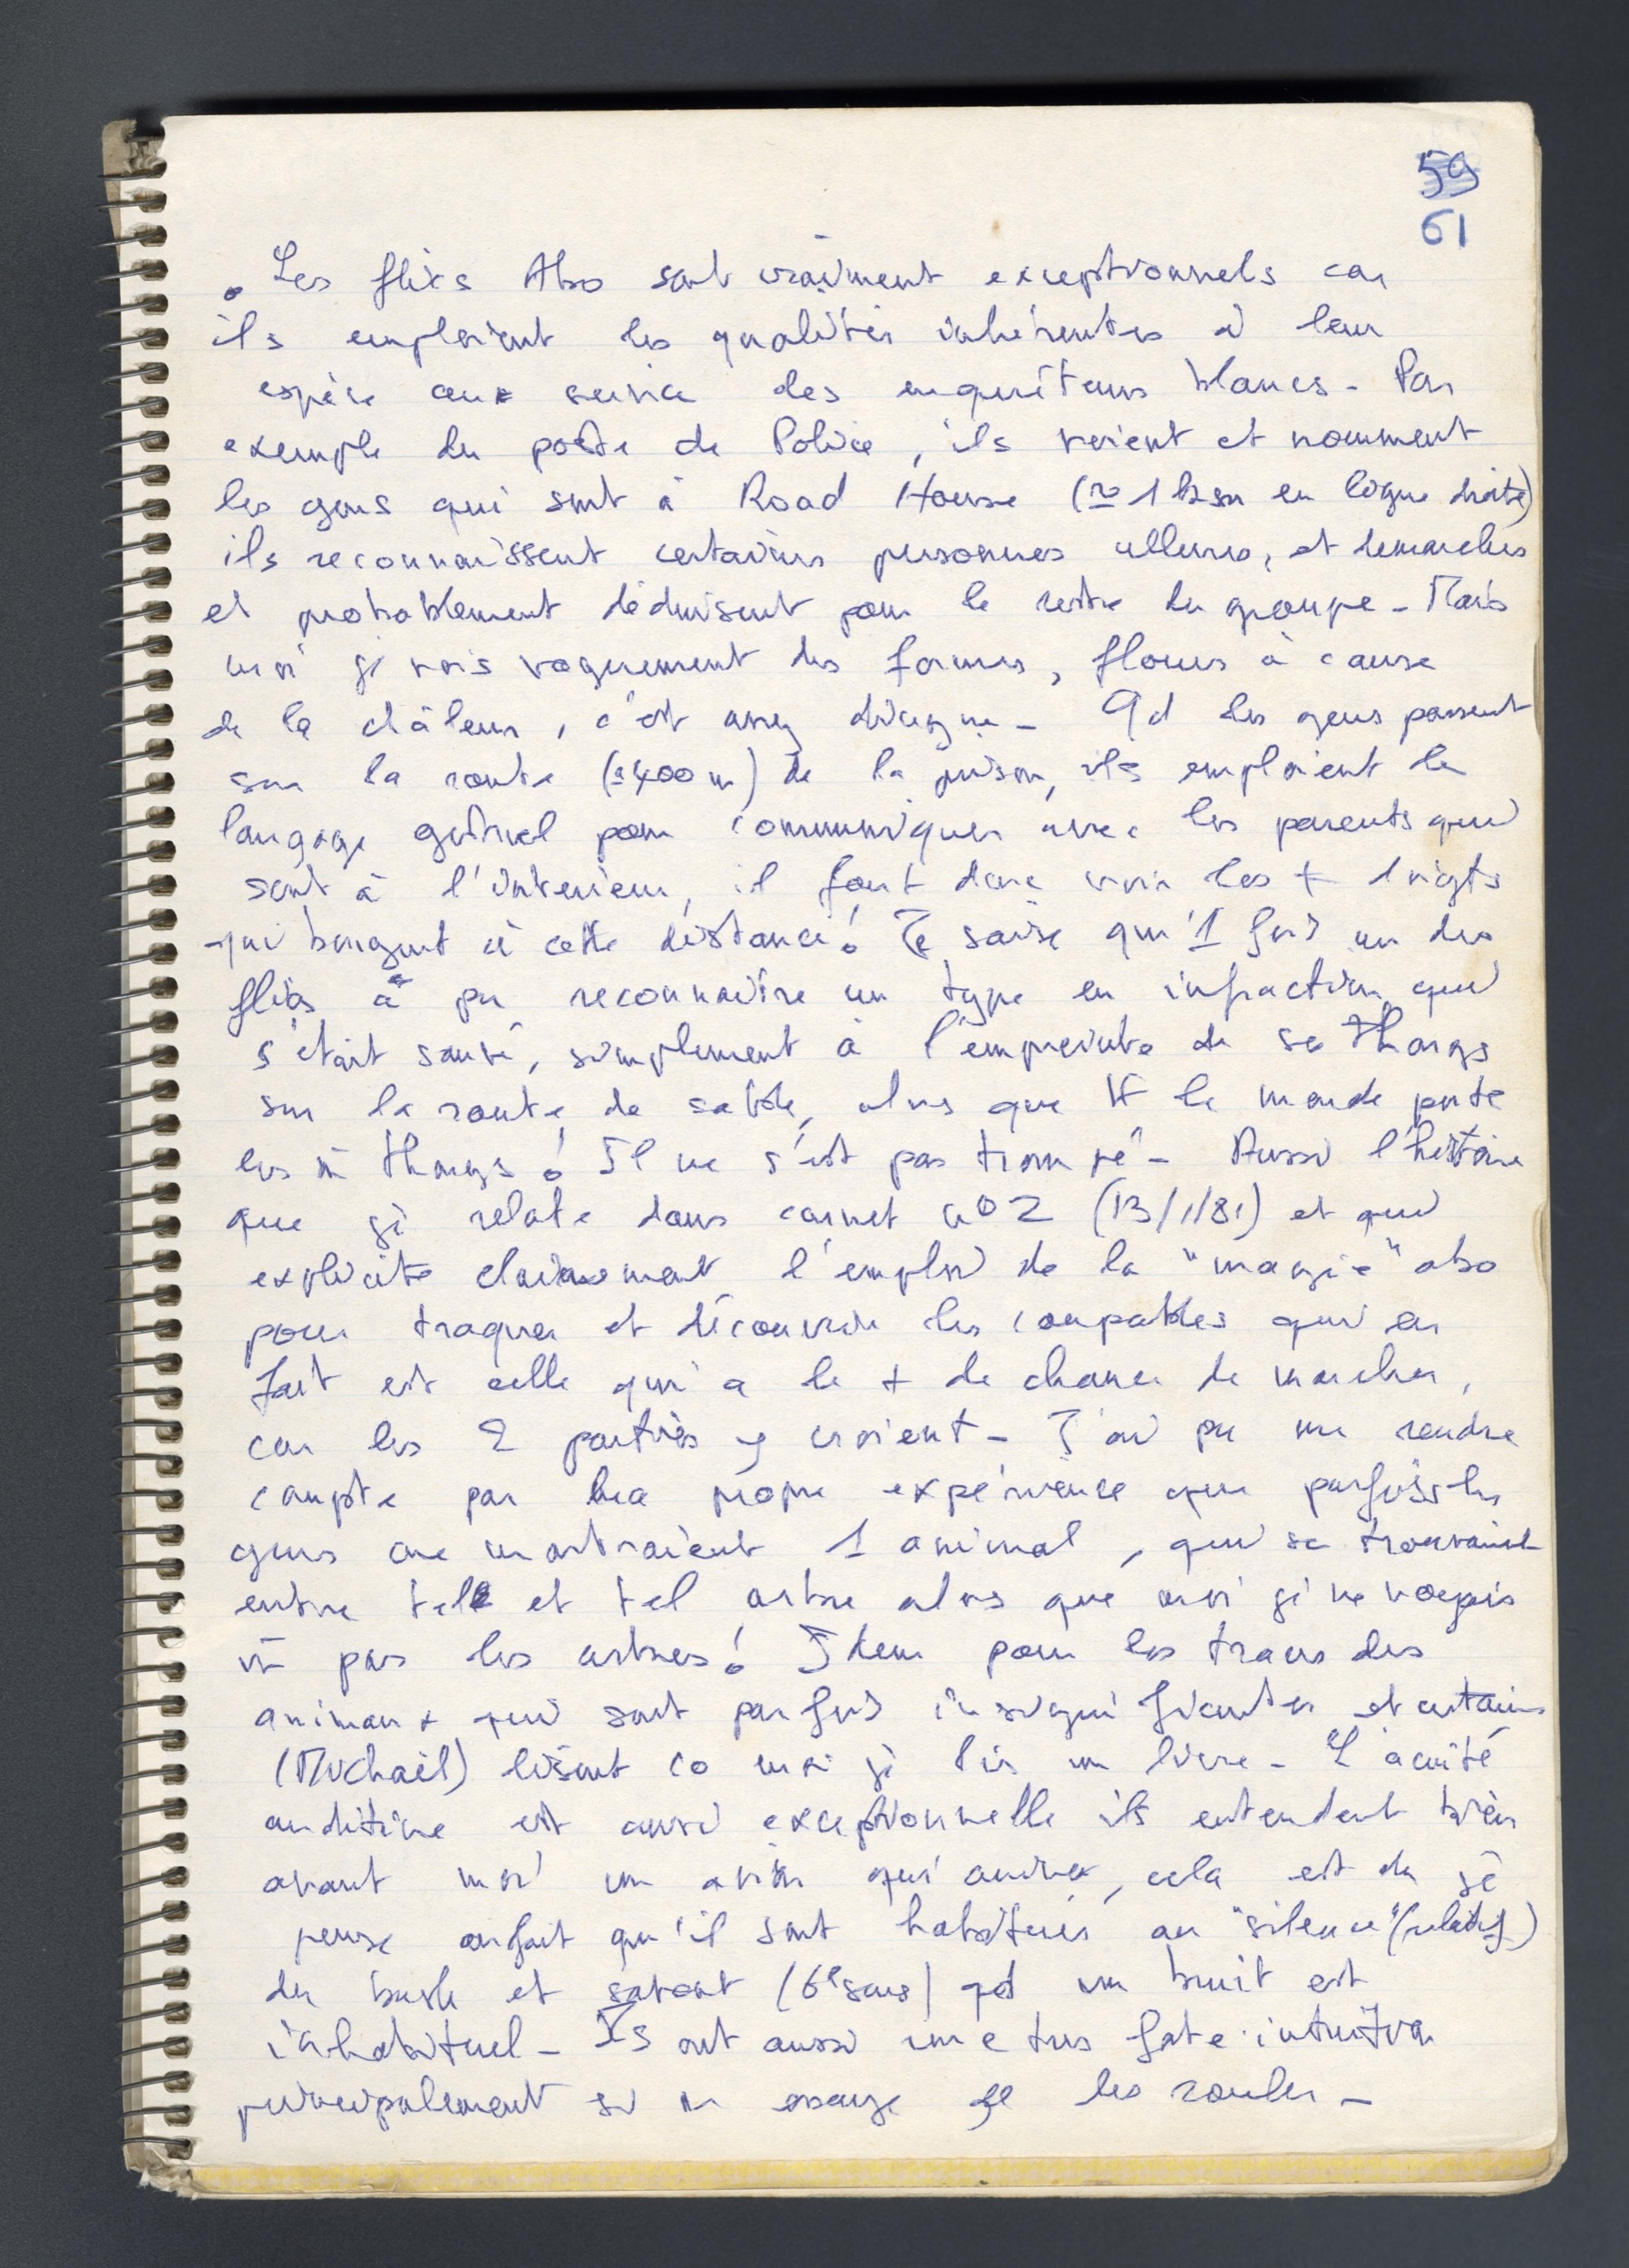 59
61
. Les flics Abo sont vraiment exceptionnels car
ils emploient les qualités inhérentes à leur
espèce au service des enquêteurs blancs - Par
exemple du poste de Police, ils voient et nomment
les gens qui sont à Road House (≃ 1 km en ligne droite)
ils reconnaissent certaines personnes allures, et demarches
et probablement déduisent pour le reste du groupe - Mais
moi je vois vaguement des formes, floues à cause
de la châleur, c'est assez dingue - Qd les gens passent
sur la route (≃ 400 m) de la prison, ils emploient le
langage gestuel pour communiquer avec les parents qui
sont à l'interieur, il faut donc voir les + doigts
qui bougent à cette distance! Je sais qu'1 fois un des
flics a pu reconnaître un type en infraction qui
s'était sauvé, simplement à l'empreinte de sa thongs
sur la route de sable, alors que tt le monde porte
les m̂ thongs! Il ne s'est pas trompé - Aussi l'histoire
que je relate dans carnet n° 2 (13/1/81) et qui
explicite clairement l'emploi de la "magie" abo
pour traquer et découvrir les coupables qui en
fait est celle qui a le + de chance de marcher,
car les 2 parties y croient - J'ai pu me rendre
compte par ma propre expérience que parfois les
gens me montraient 1 animal, qui se trouvait
entre tel et tel arbre alors que moi je ne voyais
m̂ pas les arbres! Idem pour les traces des
animaux qui sont parfois insignifiantes et certains
(Michaël) lisent co moi je lis un livre - L'acuité
auditive est aussi exceptionnelle ils entendent bien
avant moi un avion qui arrive, cela est du je
pense au fait qu'il sont habitués au "silence" (relatif)
du bush et savent (6e sens) qd un bruit est
inhabituel - Ils ont aussi une tres forte intuition
principalement si on essaye de les rouler -